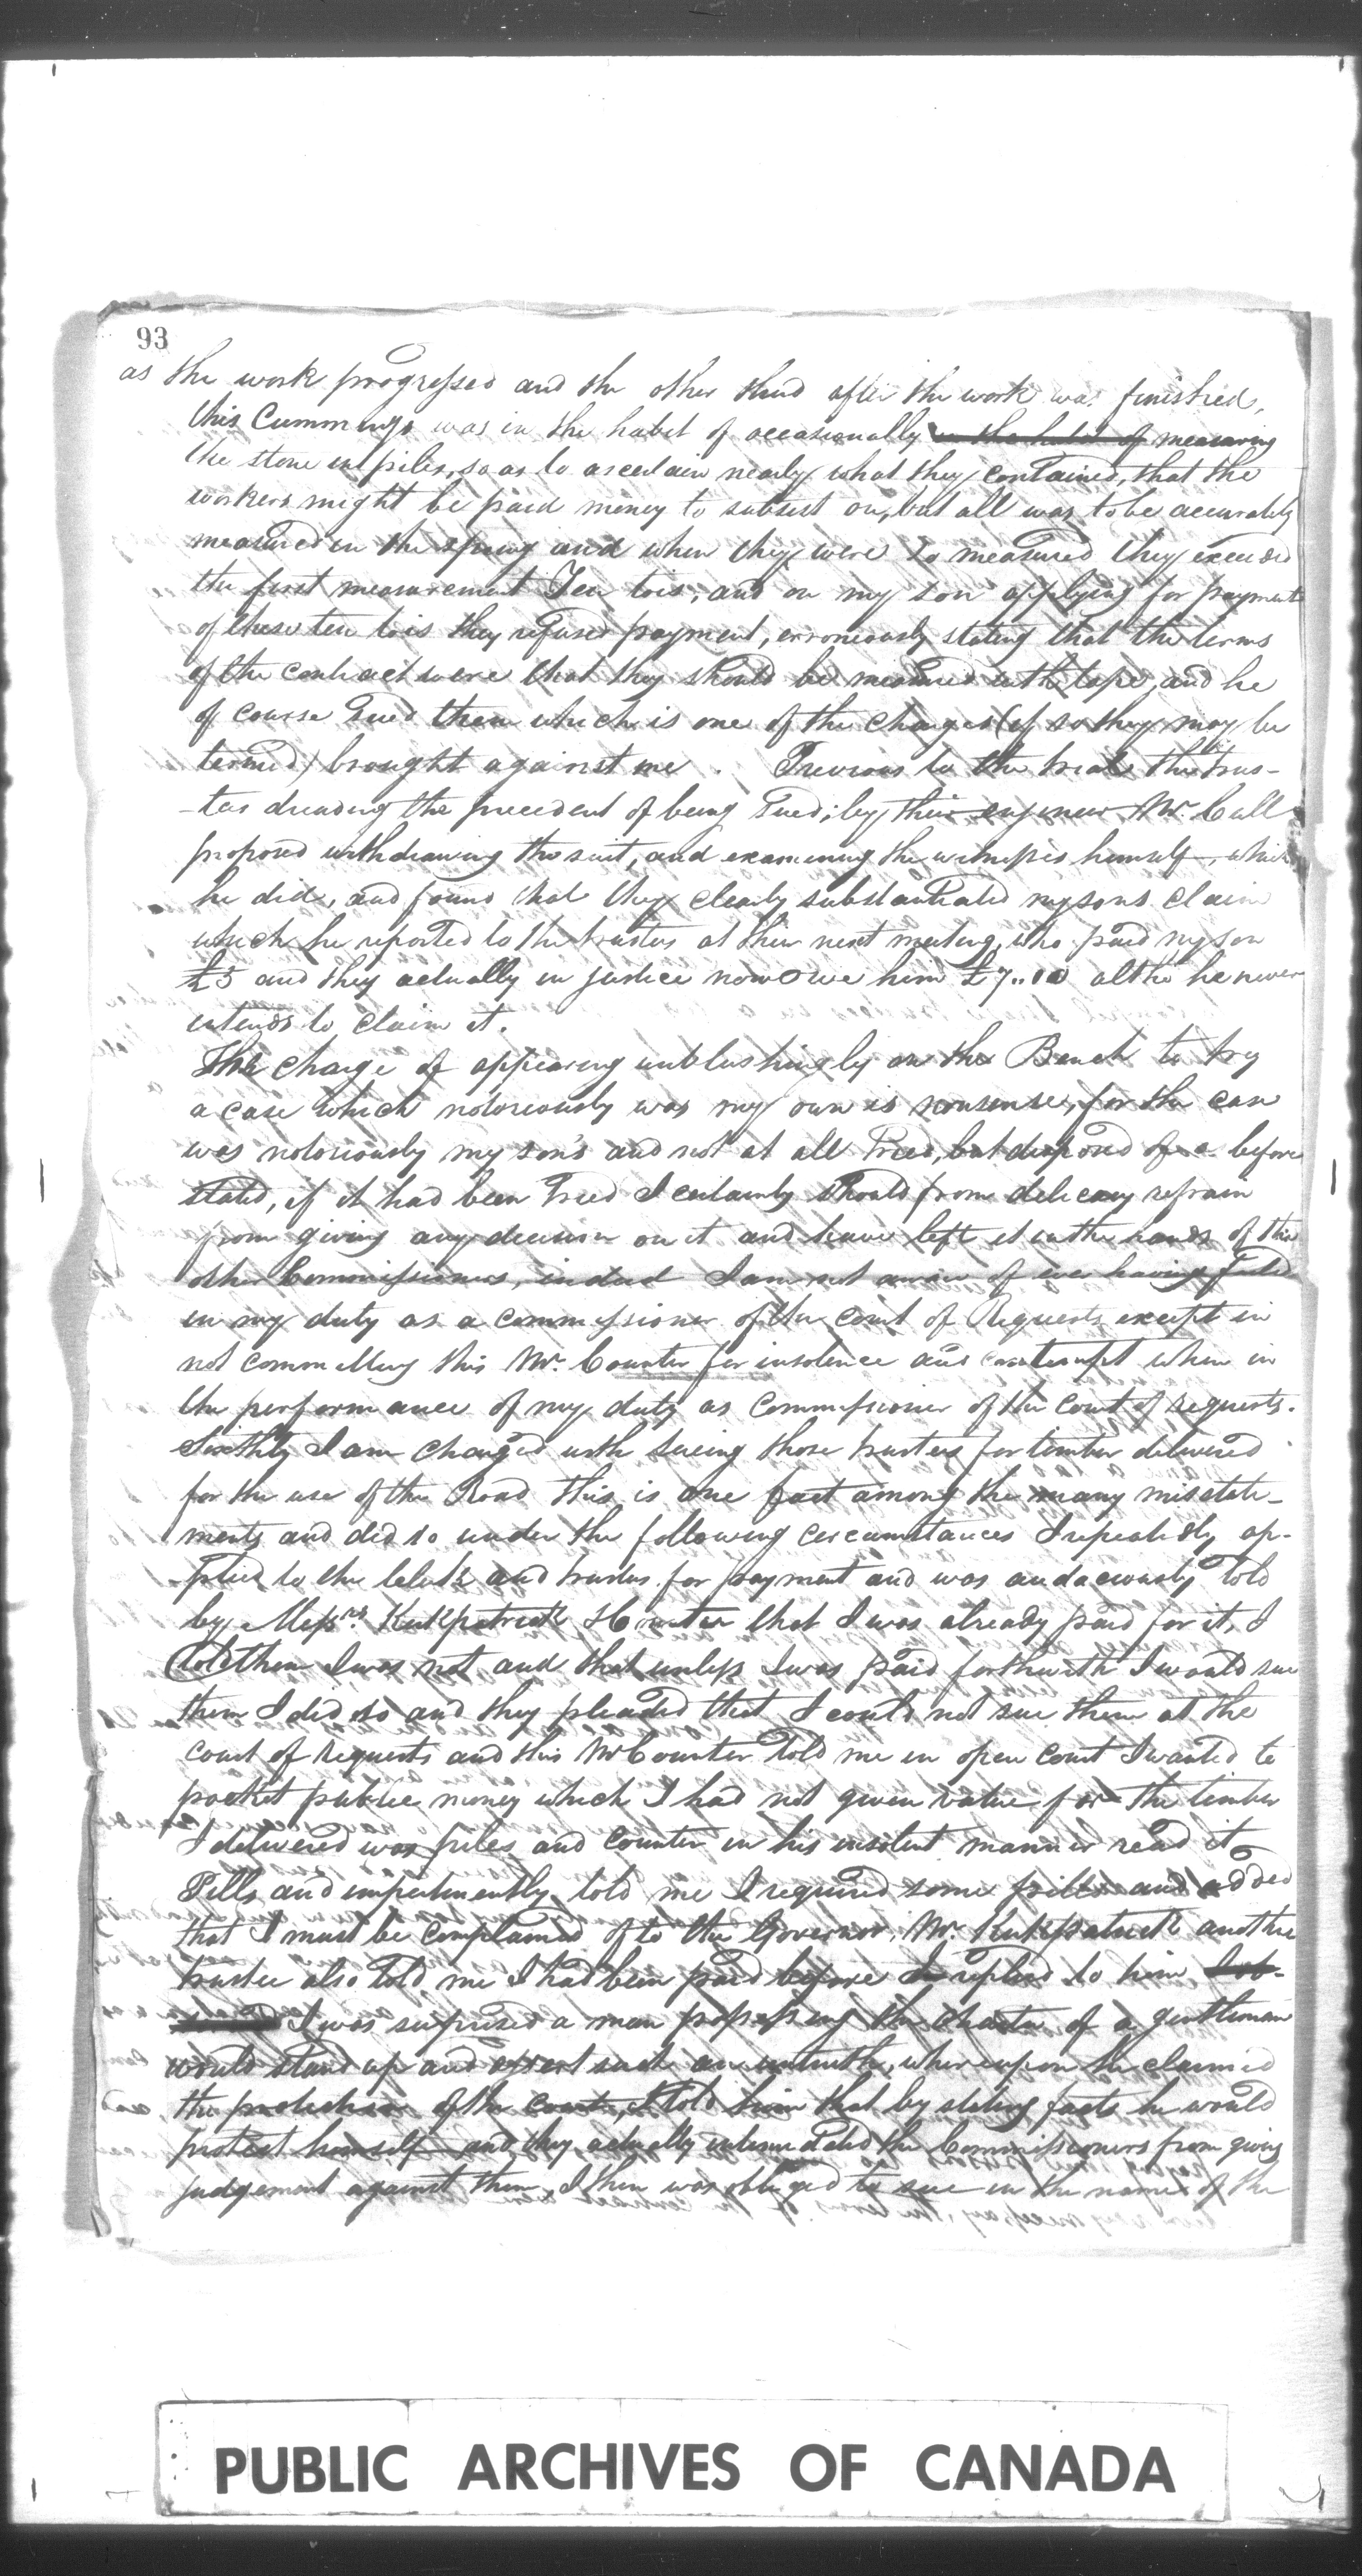 93
as the work progressed and the other third after the work was finished,
this Cummings was in the habit of occasionally in the habit of measuring
the stone in piles, so as to ascertain nearly what they contained, that the
workers might be paid money to subsist on, but all was to be accurately
measured in the spring and when they were so measured they exceeded
the first measurement Ten tois, and on my son applying for payment
of these ten tois they refused payment, erroneously stating that the terms
of the contract were that they should be measured with tape, and he
of course sued them which is one of the charges (if so they may be
termed) brought against me. Previous to the trial the trus-
-tees dreading the precedent of being sued, by their engineer Mr. Cull
proposed withdrawing the suit, and examining the witnesses himself, which
he did, and found that they clearly substantiated my sons claim
which he reported to the trustees at their next meeting, who paid my son
£5 and they actually in justice now owe him £7..10 altho he never
intends to claim it.
The charge of appearing unblushingly on the Bench to try
a case which notoriously was my own is nonsense, for the case
was notoriously my son's and not at all tried, but disposed of as before
stated, if it had been tried I certainly should from delicacy refrain
from giving any decision on it and have left it in the hands of the
other Commissioners, indeed I am not aware of ever having failed
in my duty as a commissioner of the court of Requests except in
not committing this Mr. Counter for insolence and contempt when in
the performance of my duty as Commissioner of the Court of requests.
Sixthly I am charged with sueing those trustees for timber delivered
for the use of the Road this is one fact among the many misstate-
ments and did so under the following circumstances I repeatedly ap-
-plied to the Clerk and trustees for payment and was audaciously told
by Messrs. Kirkpatrick & Counter that I was already paid for it, I
told them I was not, and that unless I was paid forthwith I would sue
them I did so and they pleaded that I could not sue them at the
court of requests and this Mr Counter told me in open court I wanted to
pocket public money which I had not given value for the timber
I delivered was piles and Counter in his insolent manner read it
Pills and impertinently told me I required some pills and added
that I must be complained of to the Governor, Mr. Kirkpatrick another
trustee also told me I had been paid before I replied to him
I was surprised a man possessing the character of a gentleman
would stand up and assert such an untruth, whereupon he claimed
the protection of the Court, I told him that by stating facts he would
protect himself and they actually intimidated the Commissioners from giving
judgement against them, I then was obliged to sue in the name of the
PUBLIC ARCHIVES OF CANADA